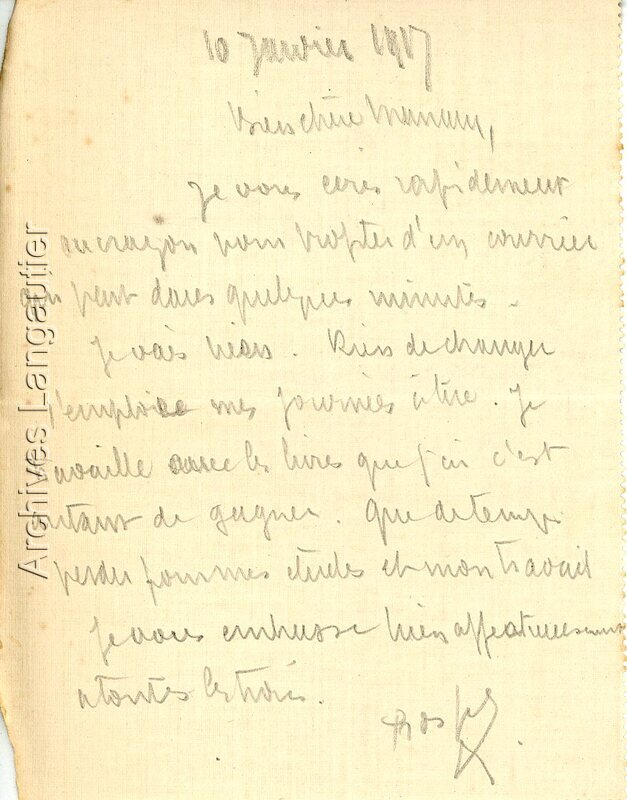 10 Janvier 1917
Bien chère Maman,
Je vous écris rapidement
au crayon pour profiter d'un courrier
qui part dans quelques minutes.
Je vais bien. Rien de changer
J'emploie mes journées à lire. Je
travaille avec les livres que j'ai c'est
autant de gagner. Que de temps
perdu pour mes études et mon travail
Je vous embrasse bien affectueusement
a toutes les trois.
Archives_Langautier